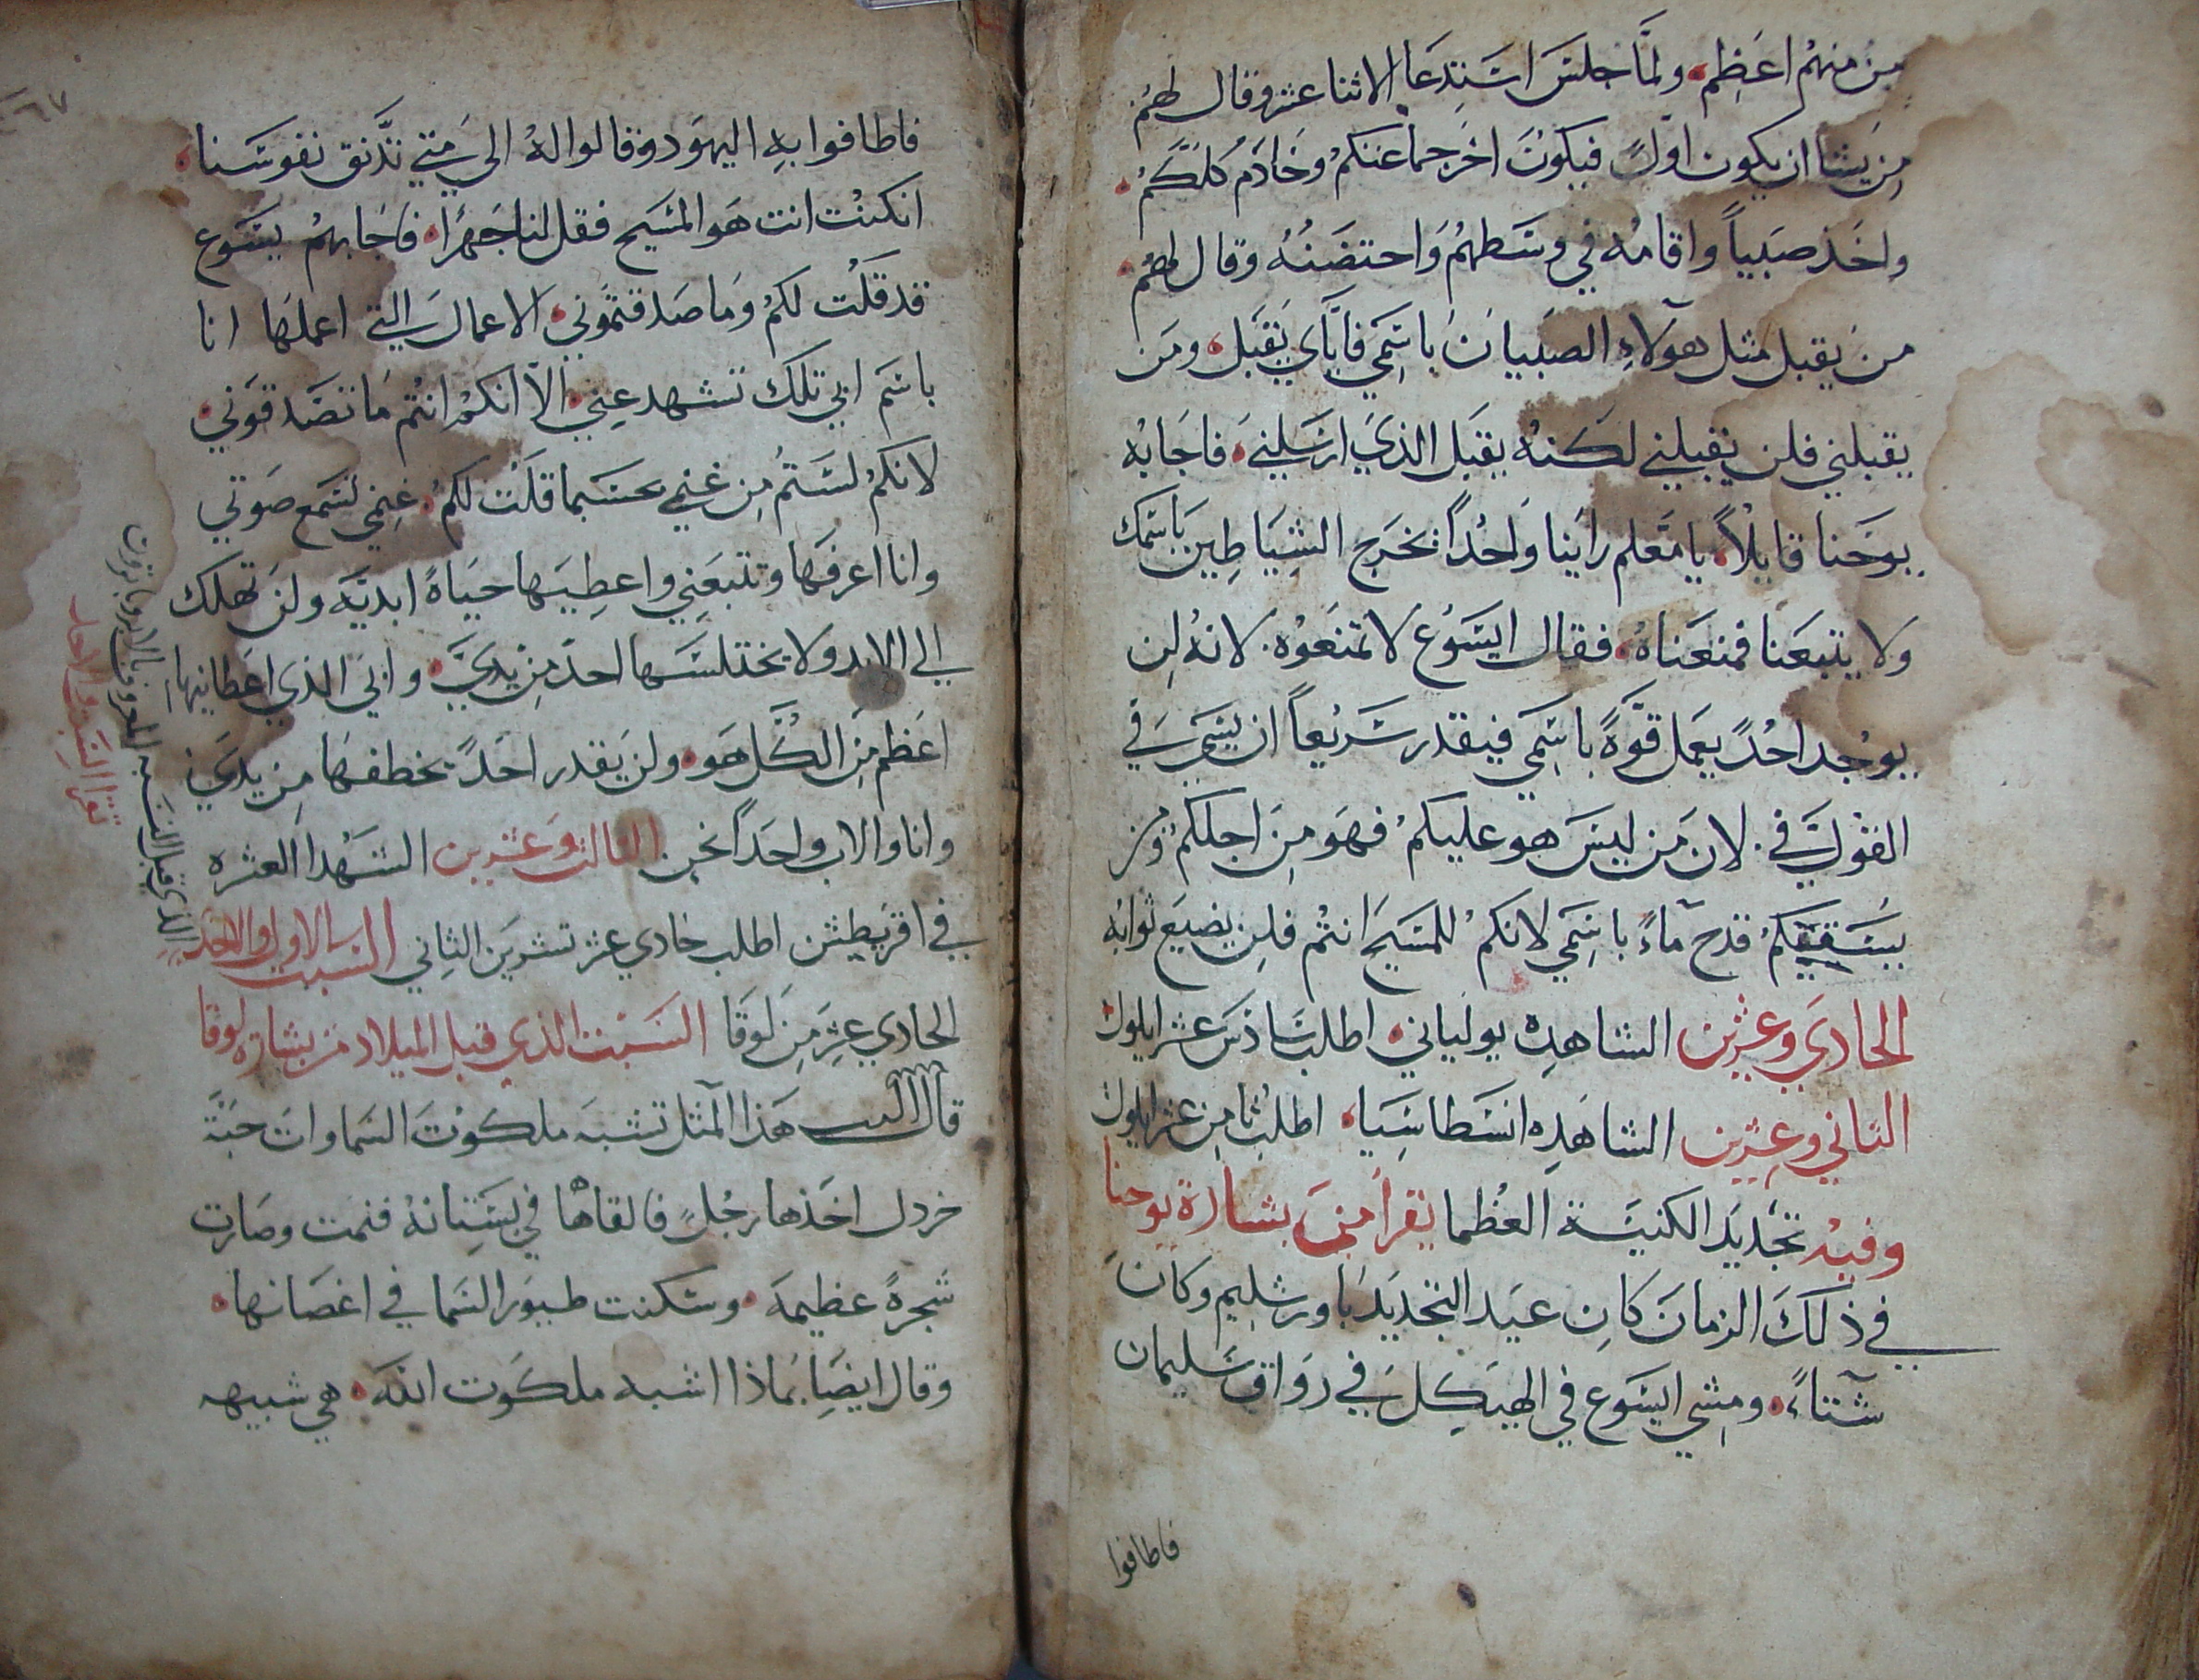 من منهم اعظم، ولما جلس استدعا الاثنا عشر وقال لهم
من يشا ان يكون اولً فيكون اخر جماعتكم وخادم كلكم،
واخذ صبياً واقامه في وسطهم واحتضنه وقال لهم،
من يقبل مثل هولاءِ الصبيان باسمي فاياي يقبل، ومن
يقبلني فلن يقبلني لكنه يقبل الذي ارسلني، فاجابه
يوحنا قايلاً، يا معلم راينا واحداً يخرج الشياطين باسمك
ولا يتبعنا فمنعناه، فقال ايسوع لا تمنعوه. لانه لن
يوجد احدً يعمل قوةً باسمي فيقدر سريعاً ان يسي في
القول في. لان من ليس هو عليكم فهو من اجلكم ومن
يسقيكم قدح ماءً باسمي لانكم للمسيح انتم فلن يضيع ثوابه
الحادي وعشرين الشاهده يولياني، اطلب سادس عشر ايلول
الثاني وعشرين الشاهده انسطاسيا، اطلب ثامن عشر ايلول
وفيه تجديد الكنيسة العظما يقرا من بشارة يوحنا
في ذلك الزمان كان عيد التجديد باورشليم وكان
شتاءً، ومشي ايسوع في الهيكل في رواق سليمان
فاطافوا
فاطافوا به اليهود وقالوا له الى متي تدنق نفوسنا،
انكنت انت هو المسيح فقل لنا جهراً، فاجابهم يسوع
قد قلت لكم وما صدقتموني، الاعمال التي اعملها انا
باسم ابي تلك تشهد عني، الا انكم انتم ما تصدقوني،
لانكم لستم من غنمي حسبما قلت لكم، غنمي تسمع صوتي
وانا اعرفها وتتبعني واعطيها حياةً ابديه ولن تهلك
الي الابد ولا يختلسها احدً من يدي، وابي الذي اعطانيها
اعظم من الكل هو، ولن يقدر احدً يخطفها من يدي
وانا والاب واحداً نحن الثالث وعشرين الشهدا العشره
في اقريطش اطلب حادي عشر تشرين الثاني السبت الاول والاحد
الحادي عشر من لوقا السبت الذي قبل الميلاد من بشارة لوقا
قال الرب هذا المثل تشبه ملكوت السماوات حبة
خردل اخذها رجلٍ فالقاها في بستانه فنمت وصارت
شجرةً عظيمه، وسكنت طيور السما في اغصانها،
وقال ايضا بماذا اشبه ملكوت الله، هي شبيهه
الذي قبل النسبه
تقرا السبت والاحد